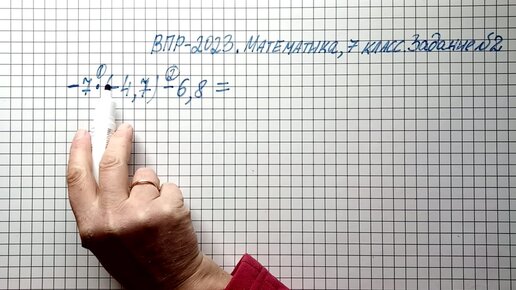 ВПР-2023. Математика, 7 класс. Задание №2
① ②
-7·(-4,7)-6,8=